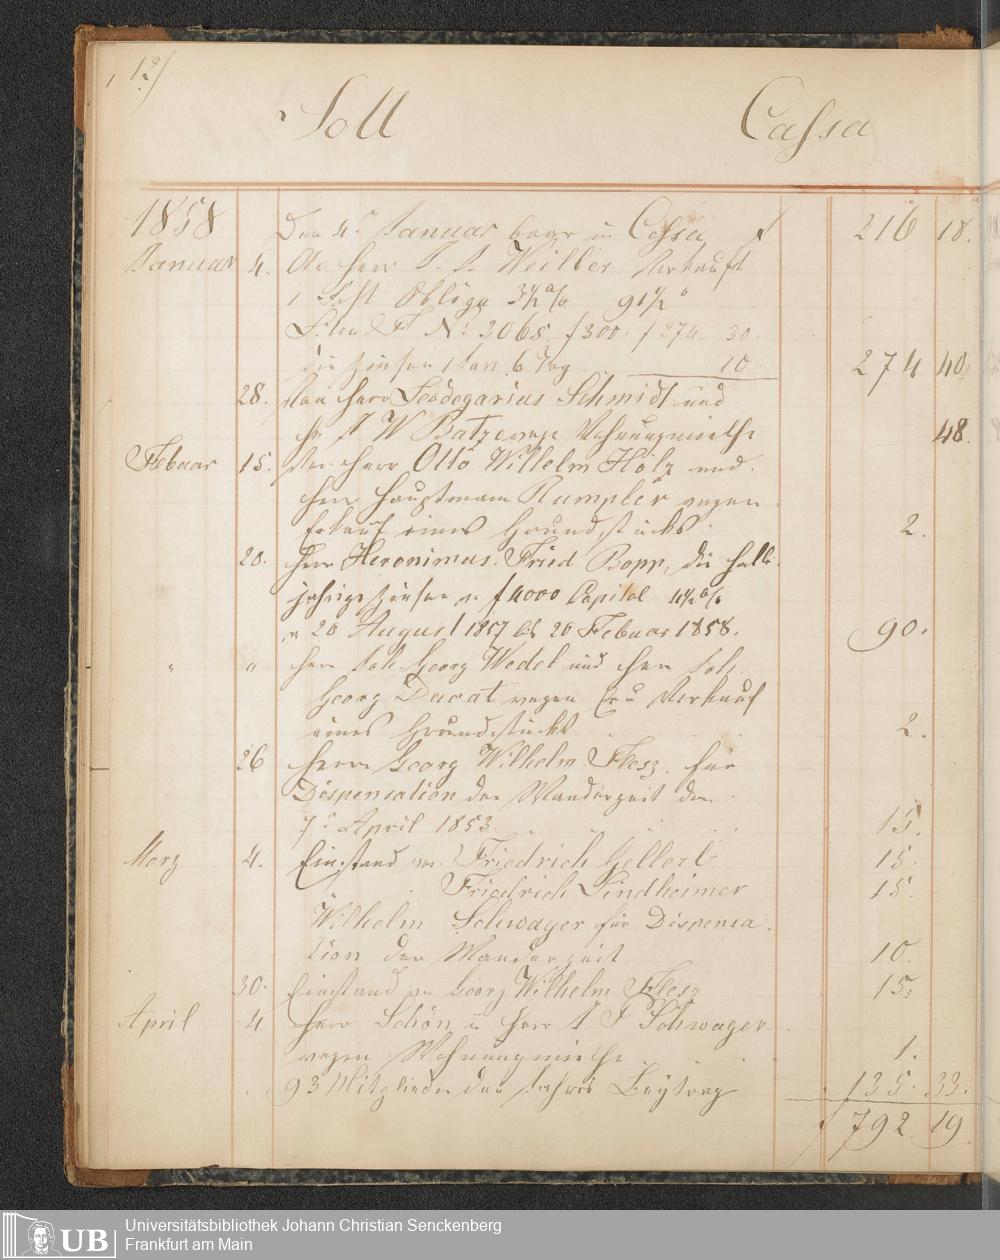 12)
Soll Cassa
1858. Den 4ten Januar baar in Cassa f 216 18.
Januar 4. An Herr J. J. Weiller Verkauft
1 Obliga 3½ % 91½
Litra F No 2065. f 300. f 274. 30.
die Zinsen 1 Jan. 6 Tag 10 274 40.
28. Von Herr Leodegarius Schmidt und
Hr J W Batz wege Wohnungmiethe 48.
Febuar 15. Von Herr Otto Wilhelm Holz und
Herr Hauptmann Rumpler wegen
Verkauf eines Grundstücks 2.
20. Herr Heronimus Fried Bopp, die halb
jahrige Zinsen v f 4000 Capital 4½ %
v 20 August 1857 bis 20 Febuar 1858. 90.
" " Herr Joh Georg Wedel und Herr Joh.
Georg Dacat wegen Verkauf
eines Grundstücks 2.
26 Herrn Georg Wilhelm Flesz. für
Dispensation der Wanderzeit den
7t April 1853. 15.
Merz 4. Einstand von Friedrich Gellert 15.
" Friedrich Lindheimer 15.
Wilhelm Schwager für Dispensa
tion der Wanderzeit 10.
30. Einstand von Georg Wilhelm Flesz 15.
April 4. Herr Schön u Herr J F Schwager
wegen Wohnungmiethe 1.
93 Mitglieder den Jahres Beytrag 135. 33.
f 792. 19.
UB Universitätsbibliothek Johann Christian Senckenberg
Frankfurt am Main